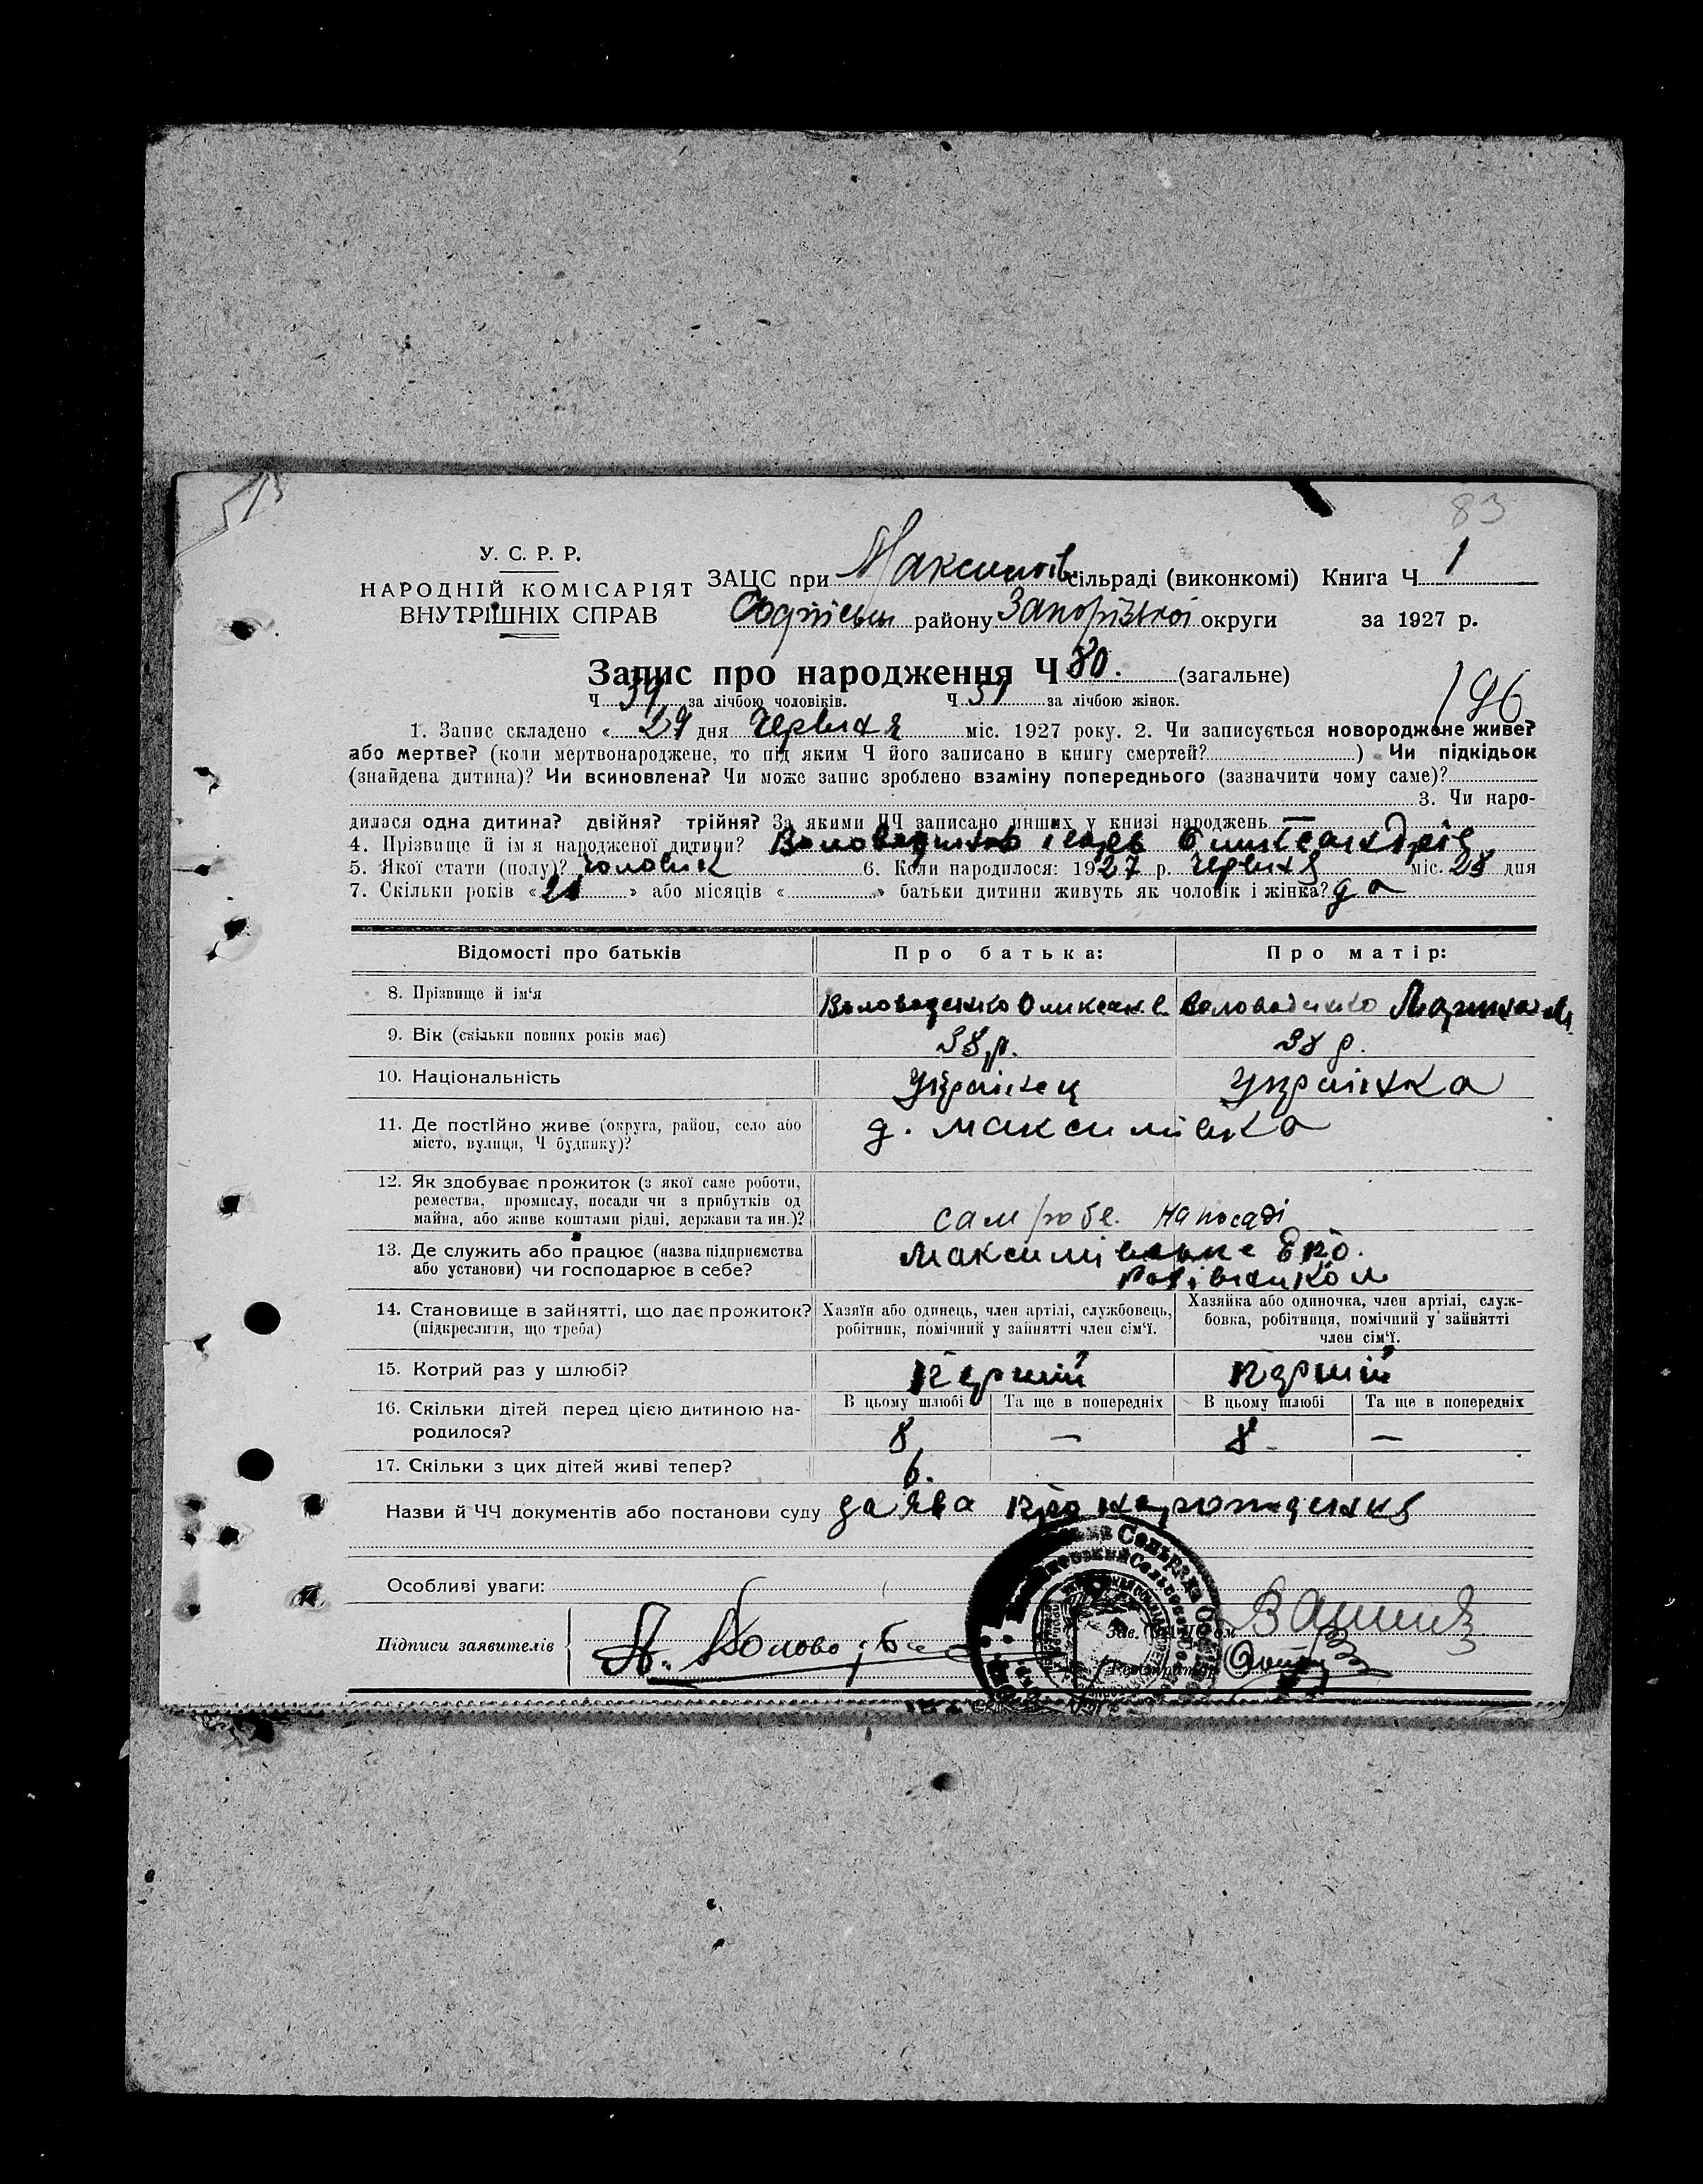 83
У. С. Р. Р.
НАРОДНІЙ КОМІСАРІЯТ
ВНУТРІШНІХ СПРАВ
ЗАЦС при Максимівс сільраді (виконкомі) Книга Ч 1
району Запорізької округи за 1927 р.
Запис про народження Ч 80. (загальне)
Ч за лічбою чоловіків. Ч 51 за лічбою жінок.
196
1. Запис складено « 29 дня Червня міс. 1927 року. 2. Чи записується новороджене живе?
або мертве? (коли мертвонароджене, то під яким Ч його записано в книгу смертей?) Чи підкідьок
(знайдена дитина)? Чи всиновлена? Чи може запис зроблено взаміну попереднього (зазначити чому саме)?
3. Чи наро-
дилася одна дитина? двійня? трійня? За якими ЧЧ записано инших у книзі народжень —
4. Прізвище й ім я народженої дитини?
5. Якої стати (полу)? чоловік 6. Коли народилося: 1927 р. Червня міс. 28 дня
7. Скільки років « 21 » або місяців « » батьки дитини живуть як чоловік і жінка? да
Відомості про батьків Про батька: Про матір:
8. Прізвище й ім‘я
9. Вік (скільки повних років має) 38 р. 38 р.
10. Національність Українец Українка
11. Де постійно живе (округа, район, село або
місто, вулиця, Ч будинку)?
д. Максимівка
12. Як здобуває прожиток (з якої саме роботи,
ремества, промислу, посади чи з прибутків од
майна, або живе коштами рідні, держави та ин.)?
сам робе. На посаді
13. Де служить або працює (назва підприємства
або установи) чи господарює в себе?
14. Становище в зайнятті, що дає прожиток?
(підкреслити, що треба)
Хазяїн або одинець, член артілі, службовець,
робітник, помічний у зайнятті член сім‘ї.
Хазяйка або одиночка, член артілі, служ-
бовка, робітниця, помічний у зайнятті
член сім‘ї.
15. Котрий раз у шлюбі? Перший Перший
16. Скільки дітей перед цією дитиною на-
родилося?
В цьому шлюбі Та ще в попередніх В цьому шлюбі Та ще в попередніх
8 — 8 —
17. Скільки з цих дітей живі тепер? 6.
Назви й ЧЧ документів або постанови суду заява про народження
Особливі уваги:
Підписи заявителів